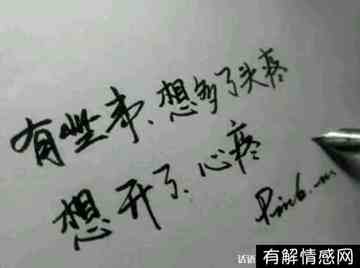 有些事、想多了头疼
想开了、心疼
有解情感网